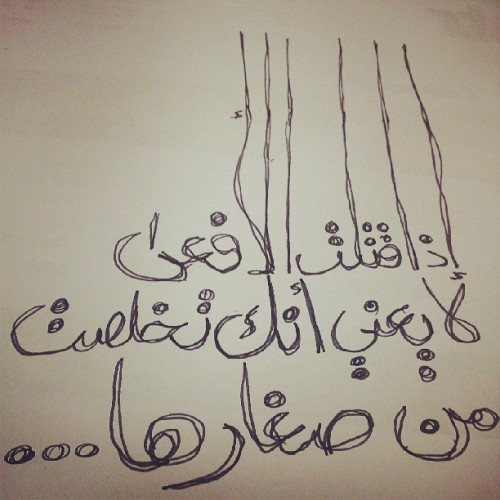 إذا قتلت الأفعى
لا يعني أنك تخلصت
من صغارها...